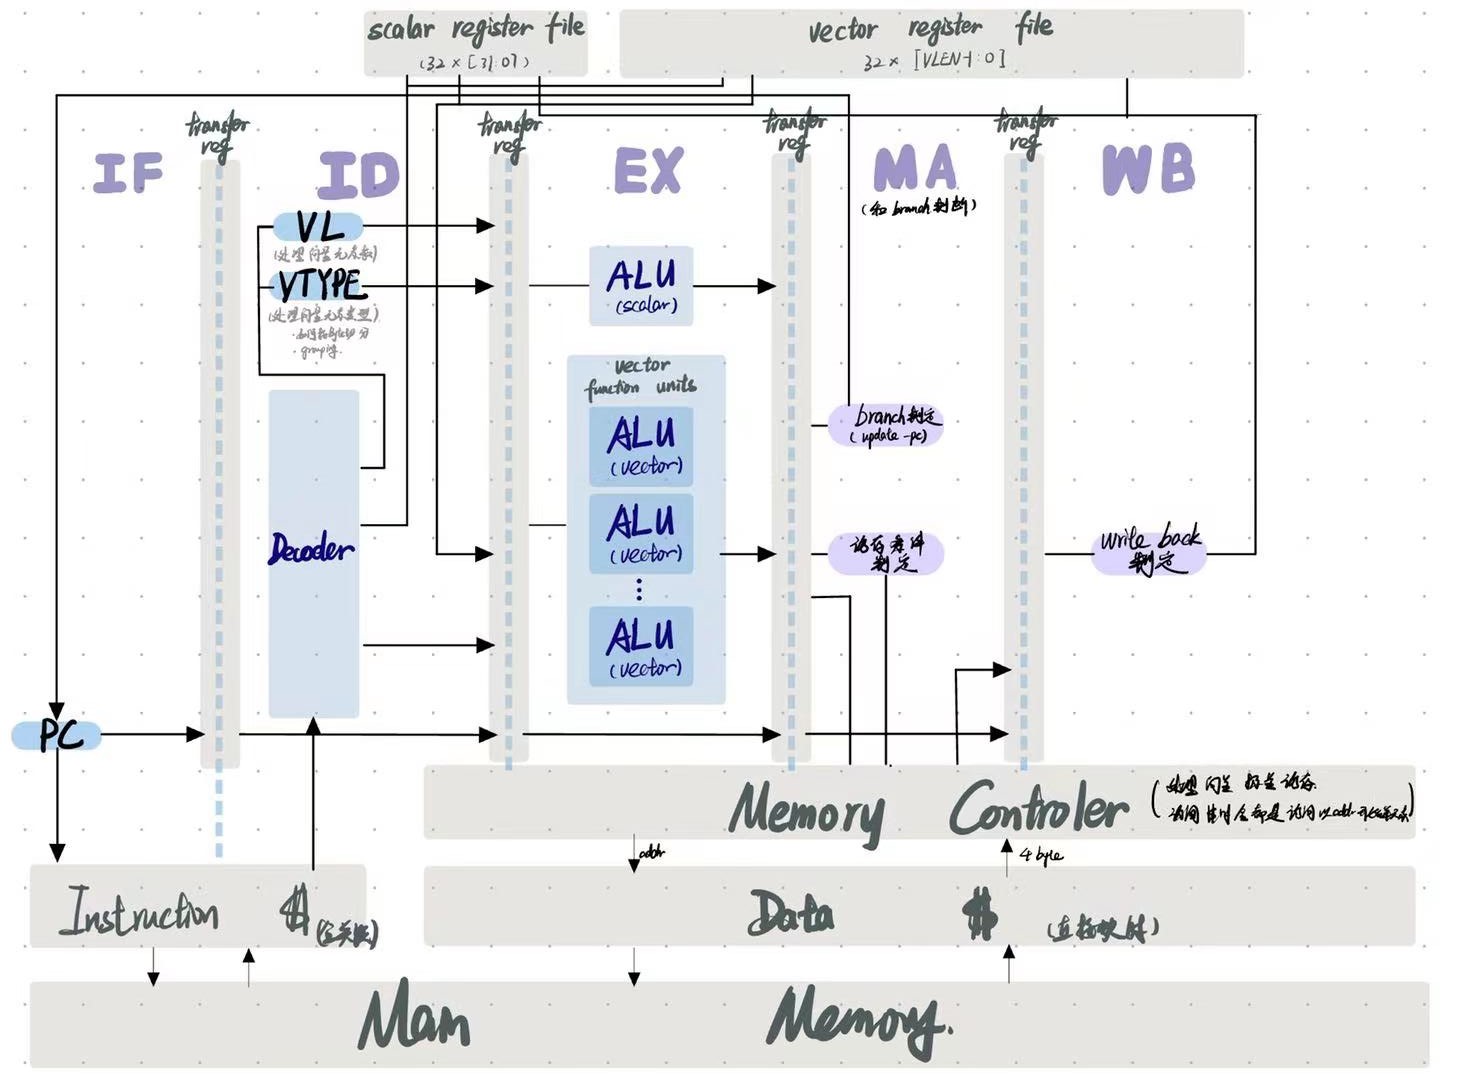 scalar register file
(32 × [31:0])
vector register file
32 × [VLEN-1:0]
transfer
reg
transfer
reg
transfer
reg
transfer
reg
IF
ID
EX
MA
(和 branch 判断)
WB
VL
(处理向量元素数)
VTYPE
(处理向量元素类型)
· grouping.
ALU
(scalar)
vector
function units
ALU
(vector)
ALU
(vector)
⋮
ALU
(vector)
branch 判定
(update-pc)
访存条件
判定
write back
判定
Decoder
PC
Memory Controler
(处理向量标量访存.
addr
4 byte
Instruction $ (全关联)
Data $ (直接映射)
Main Memory.